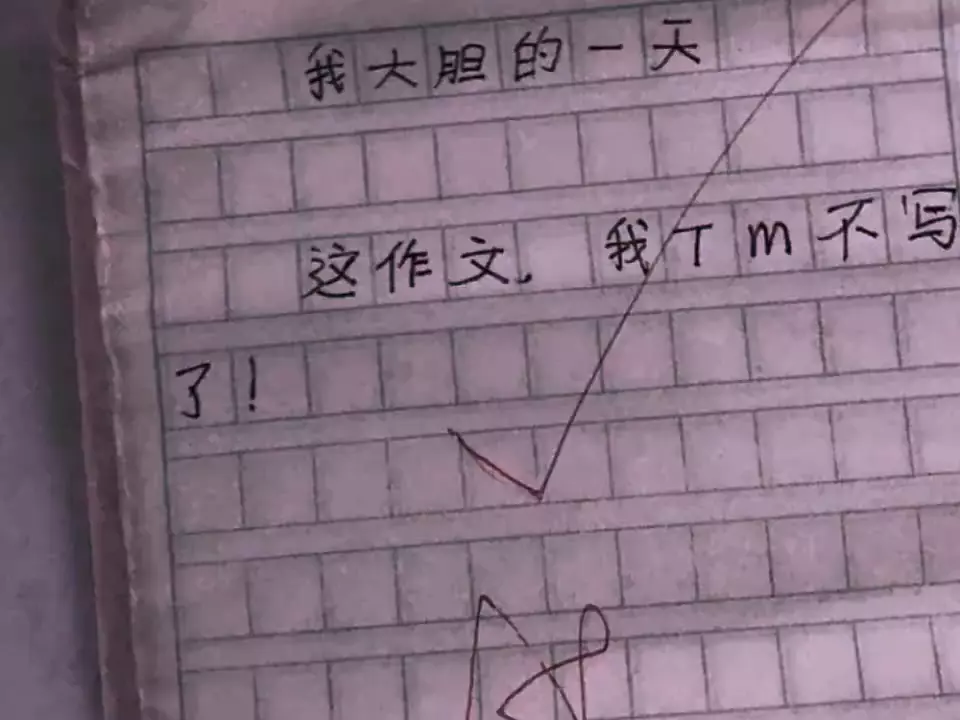 我大胆的一天
这作文，我Tm不写
了！